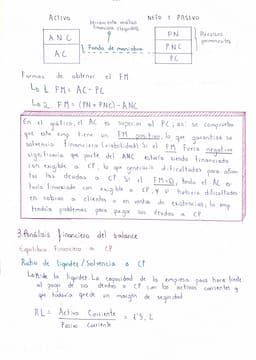 ACTIVO
NETO Y PASIVO
herramienta análisis
financiero (liquidez)
ANC
AC
Fondo de maniobra
PN
PNC
PC
Recursos
permanentes
Formas de obtener el FM
1 FM = AC - PC
2 FM = (PN + PNC) - ANC
En el gráfico, el AC es superior al PC; así se comprueba
que esta emp tiene un FM positivo, lo que garantiza su
solvencia financiera (estabilidad). Si el FM fuera negativo
significaría que parte del ANC estaría siendo financiado
con exigible a CP, lo que generaría dificultades para afron
tar las deudas a CP. Si el FM=0, todo el AC es
taría financiado con exigible a CP, y si hubiera dificultades
en cobros a clientes o en ventas de existencias, la emp
tendría problemas para pagar sus deudas a CP
3. Análisis financiero del balance
Equilibrio Financiero a CP
Ratio de liquidez / Solvencia a CP
Mide la liquidez. La capacidad de la empresa para hacer frente
al pago de sus deudas a CP con los activos corrientes y
que todavía quede un margen de seguridad
RL = Activo Corriente / Pasivo corriente = 1'5, 2